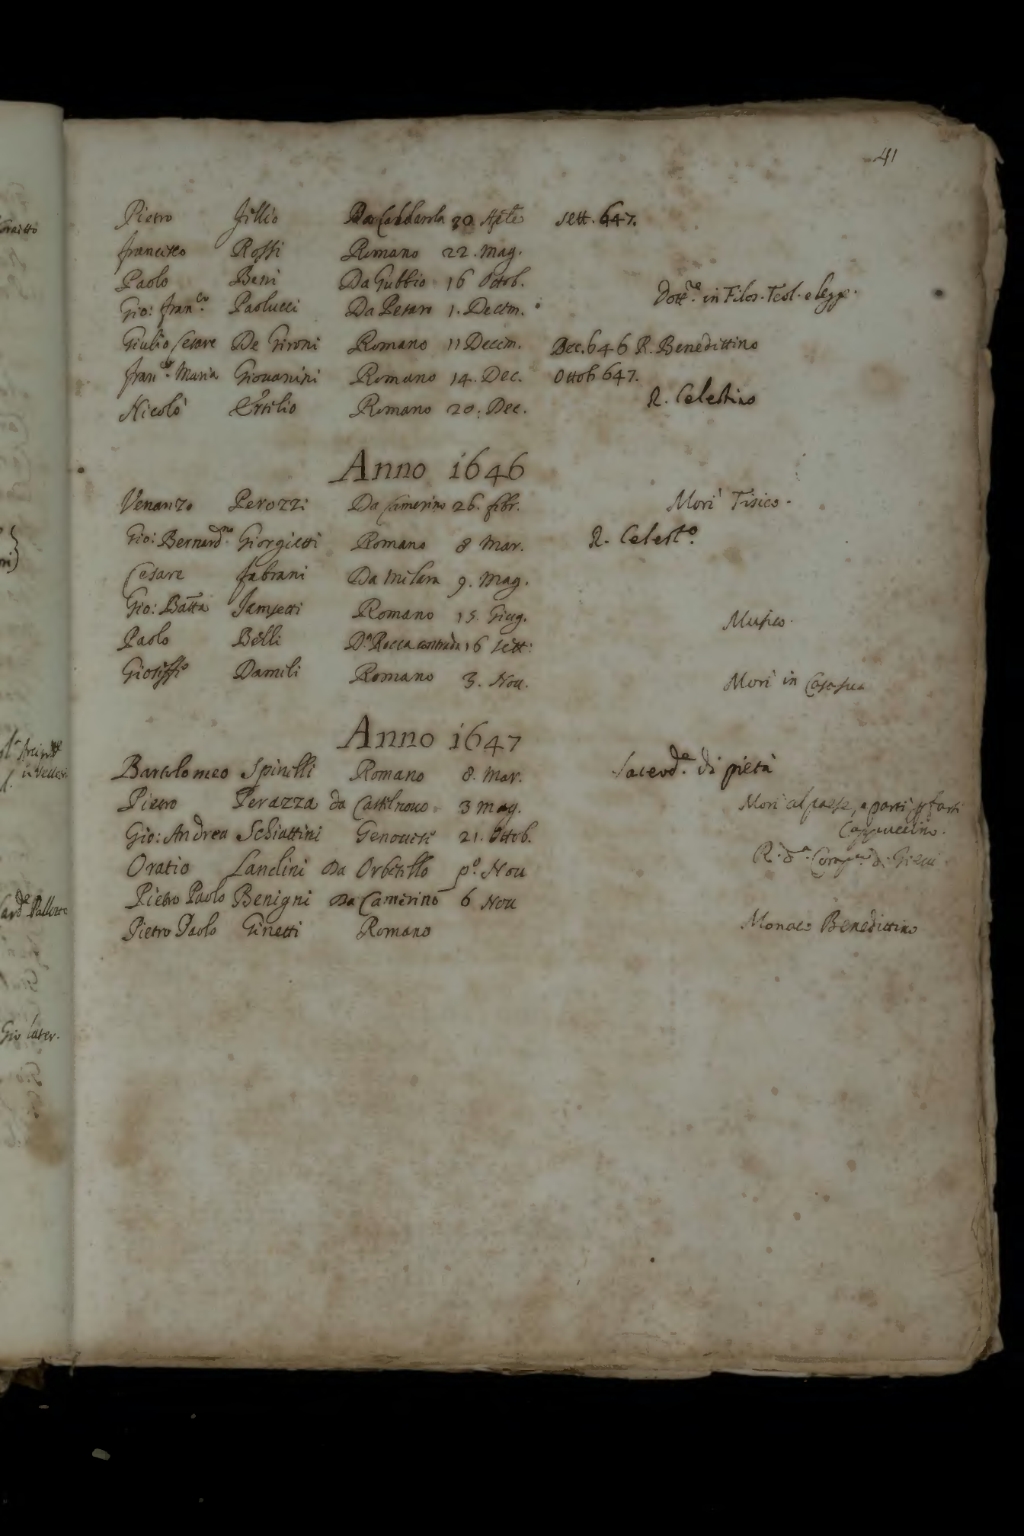 41
Pietro Jillio Da Caldarola 20. Aple sett. 647.
francesco Rossi Romano 22. Mag.
Paolo Beni Da Gubbio 16 Ottob.
Gio: fran.co Paolucci Da Pesaro 1. Decem. Dott.re in Filos. Teol. e legge.
Giulio Cesare De Gironi Romano 11 Decem. Dec. 646 R. Benedittino
fran.co Maria Giovanini Romano 14. Dec. Ottob. 647.
Nicolò Romano 20. Dec. R. Celestino
Anno 1646
Venanzo Perozzi Da Camerino 26. febr. Morì Tisico.
Gio: Bernard.no Giorgietti Romano 8 Mar. R. Celest.o
Cesare fabrani Da 9. Mag.
Gio: Batta Romano 15. Giug.
Paolo Belli Da Rocca contrada 16 sett: Musico.
Gioseffo Damili Romano 3. Nou. Morì in Casa sua
Anno 1647
Bartolomeo Spinelli Romano 8. Mar. Sacerd.e di pietà
Pietro Perazza da Castelnouo 3 Mag. Morì al paese, e partì p farsi
Cappuccino.
Gio: Andrea Schiattini Genouese 21. Ottob. R. d.a Comp.a di Giesù
Oratio Landini Da Orbetello p.o Nou
Pietro Paolo Benigni Da Camerino 6 Nou
Pietro Paolo Ginetti Romano Monaco Benedittino